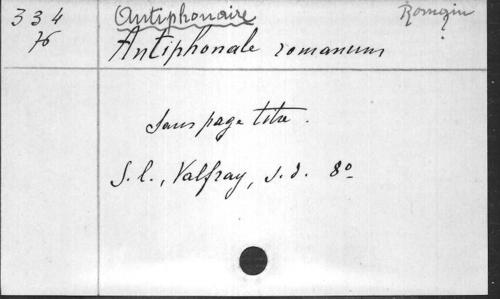 334 Antiphonaire Romain
76 Antiphonale romanum
Sans page titre.
S. l., Valfray, s. d. 8º